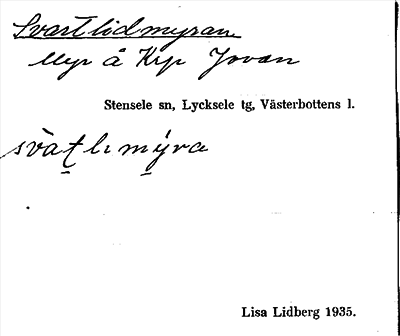 Svartlidmyran
Myr å Krp Jovan
Stensele sn, Lycksele tg, Västerbottens l.
svàt li mýra
Lisa Lidberg 1935.